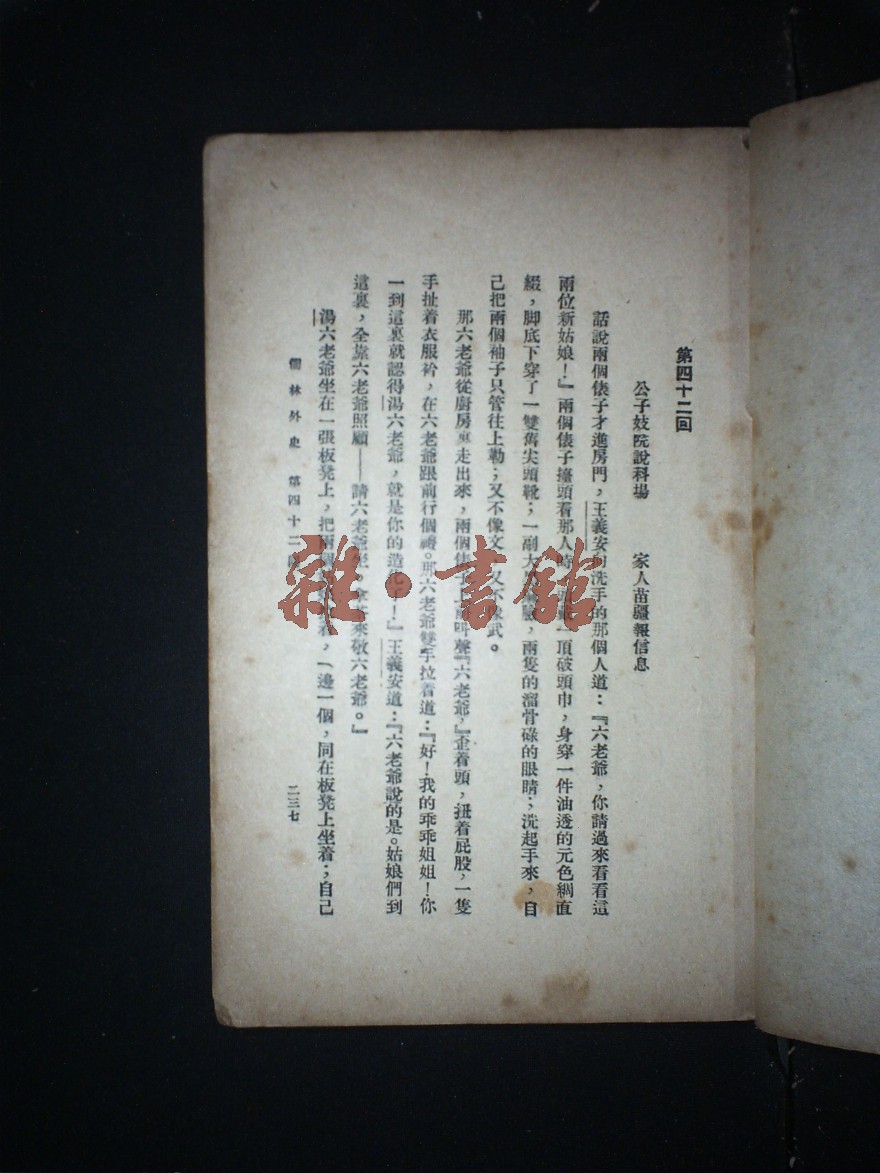 第四十二回
公子妓院說科場　家人苗疆報信息
話說兩個婊子才進房門，王義安向洗手的那個人道：『六老爺，你請過來看看這
兩位新姑娘！』兩個婊子擡頭看那人時，一頂破頭巾，身穿一件油透的元色綢直
綴，脚底下穿了一雙舊尖頭靴；一副大，兩隻的溜骨碌的眼睛；洗起手來，自
己把兩個袖子只管往上勒；又不像文，又不像武。
那六老爺從廚房裏走出來，兩個婊子上前叫聲『六老爺，』歪着頭，扭着屁股，一隻
手扯着衣服衿，在六老爺跟前行個禮。那六老爺雙手拉着道：『好！我的乖乖姐姐！你
一到這裏就認得湯六老爺，就是你的造化了！』王義安道：『六老爺說的是。姑娘們到
這裏，全靠六老爺照顧——請六老爺坐。拿茶來敬六老爺。』
湯六老爺坐在一張板凳上，把兩個，一邊一個，同在板凳上坐着；自己
儒林外史　第四十二
二三七
雜·書館